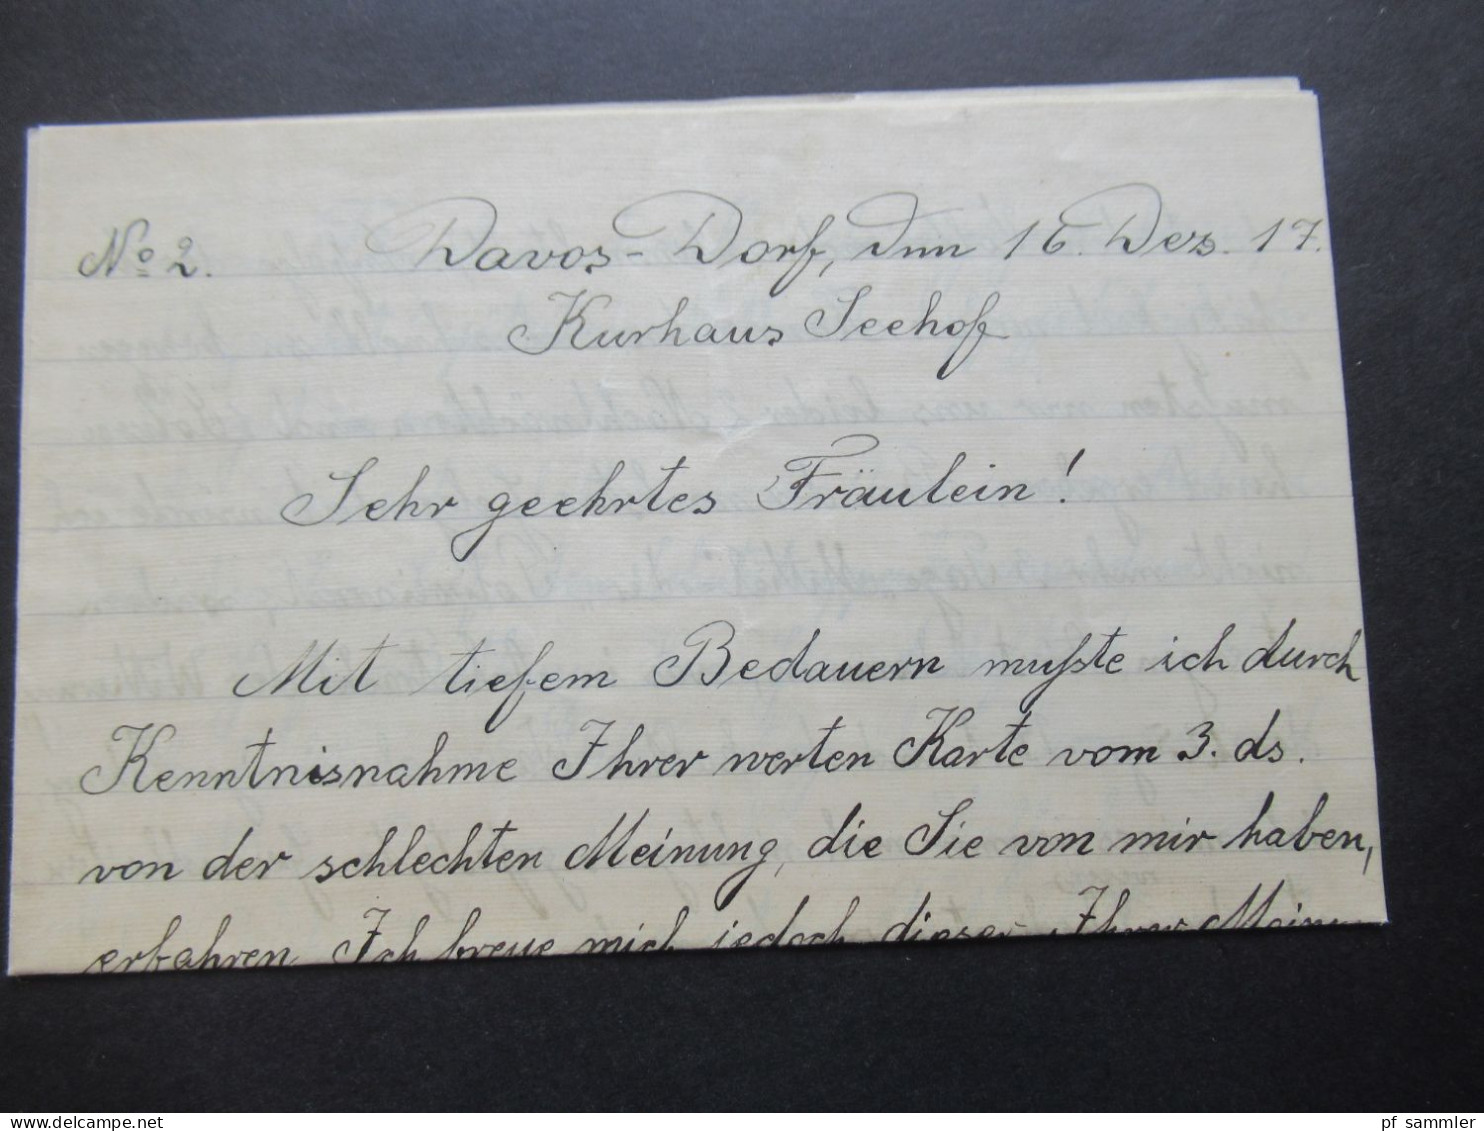 No 2. Davos-Dorf, den 16. Dez. 17.
Kurhaus Seehof
Sehr geehrtes Fräulein!
Mit tiefem Bedauern mußte ich durch
Kenntnisnahme Ihrer werten Karte vom 3. ds.
von der schlechten Meinung, die Sie von mir haben,
erfahren. Ich freue mich jedoch, dieser Ihrer Meinung
pf sammler
delcampe.net